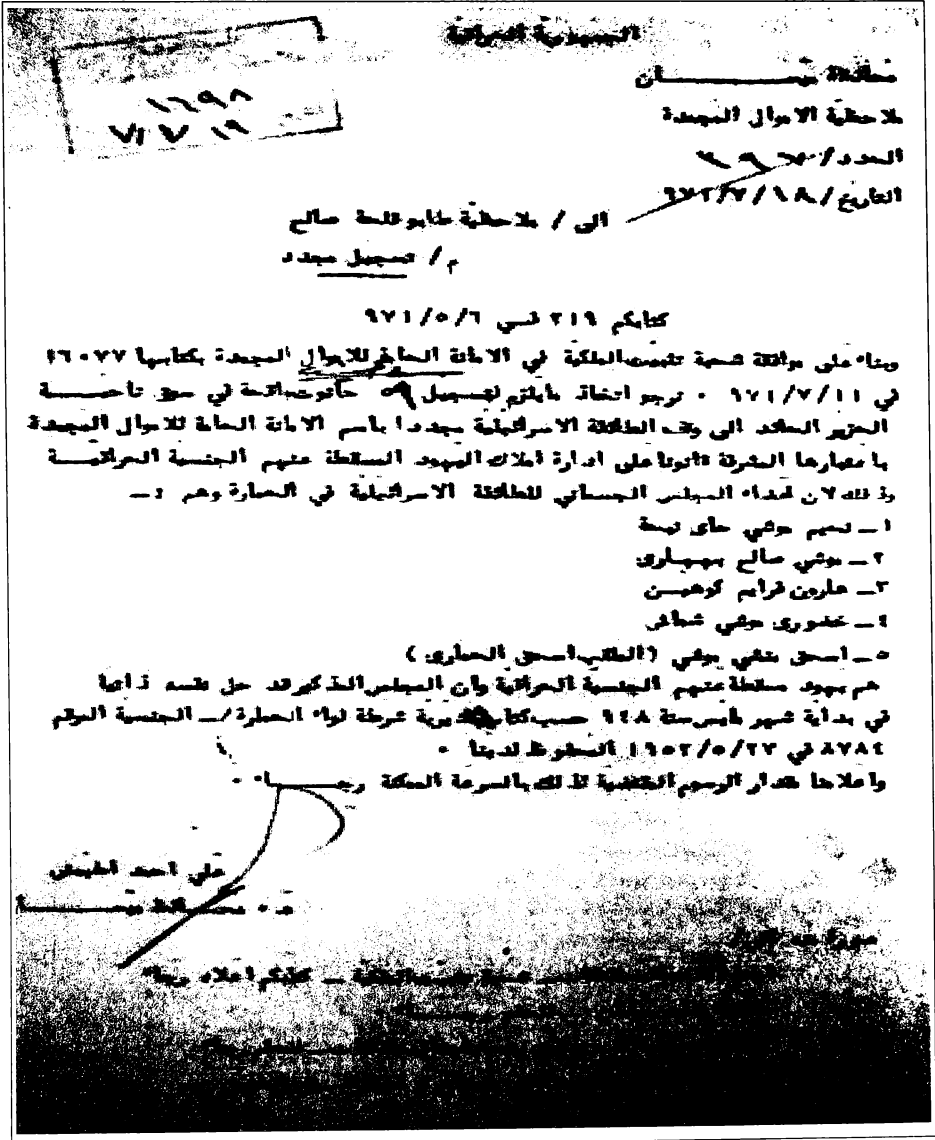 الجمهورية العراقية
محافظة ميسان
ملاحظية الاموال المجمدة
العدد /
التاريخ / ١٨ / ٧ / ٩٧٢
١٦٩٨
١٩ ٧
الى / ملاحظية طابو قلعة صالح
م / تسجيل مجدد
كتابكم ٢١٩ في ٦/٥/٩٧١
وبناء على موافقة شعبة تثبيت الملكية في الامانة العامة للاموال المجمدة بكتابها
في ١١/٧/٩٧١ ٠ نرجو اتخاذ مايلزم لتسجيل ٥٩ حانوت واقعة في سوق ناحيــــة
العزير العائد الى وقف الطائفة الاسرائيلية مجددا باسم الامانة العامة للاموال المجمدة
باعتبارها المشرفة قانونا على ادارة املاك اليهود المسقطة عنهم الجنسية العراقيــــة
وذلك لان اعضاء المجلس الجسماني للطائفة الاسرائيلية في العمارة وهم :ـ
١ـ نسيم موشي حاي نيسة
٢ـ موشي صالح بهبهاري
٣ـ هارون فرايم كوهيــن
٤ـ خضوري موشي شماش
٥ـ اسحق منشي موشي (الملقب اسحق العماري )
هم يهود مسقطة عنهم الجنسية العراقية وان المجلس المذكور قد حل نفسه ذاتيا
في بداية شهر مايس سنة ٩٤٨ حسب كتاب مديرية شرطة لواء العمارة /ـ الجنسية المرقم
٨٧٨٤ في ٢٧/٥/١٩٥٢ المحفوظ لدينا ٠
واعلامنا مقدار الرسوم المقتضية لذلك بالسرعة الممكنة رجــــاء ٠
علي احمد
محــافظ ميســــان
صورة منه الى
كتابكم اعلاه رجاء